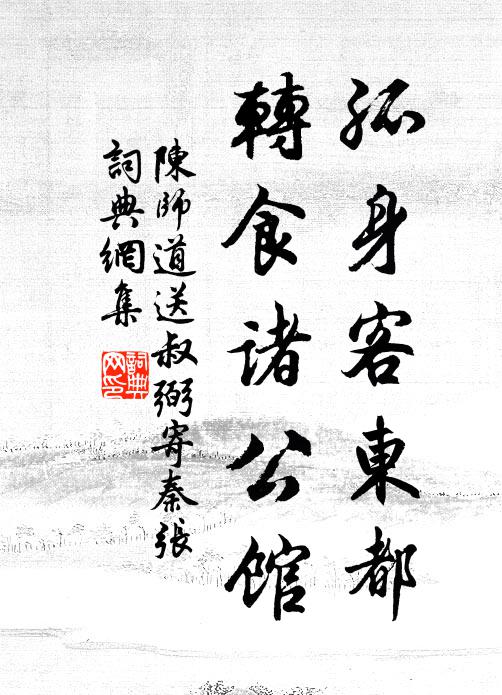 孤身客東都
轉食诸公館
陳師道送叔弼寄秦張
詞典網集
詞典
网印